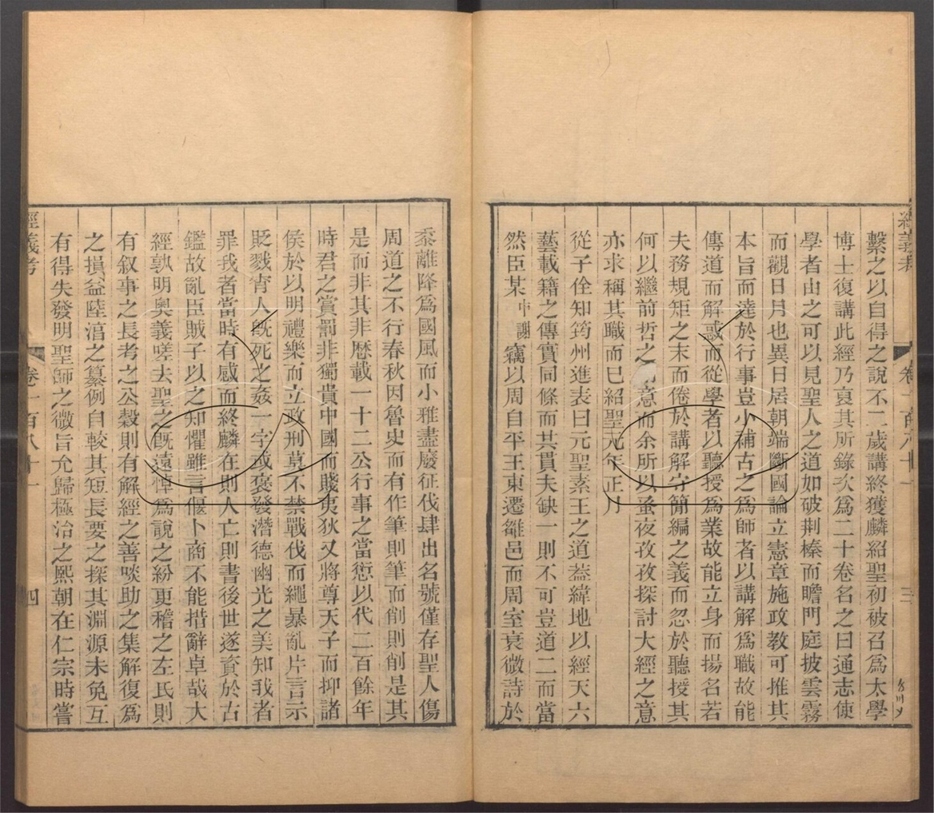 繫之以自得之說不二歲講終獲麟紹聖初被召爲太學
博士復講此經乃裒其所錄次爲二十卷名之曰通志使
學者由之可以見聖人之道如破荆榛而瞻門庭披雲霧
而觀日月也異日居朝端斷國論立憲章施政教可推其
本旨而達於行事豈小補古之爲師者以講解爲職故能
傳道而解惑而從學者以聽授爲業故能立身而揚名若
夫務規矩之末而倦於講解守簡編之義而忽於聽授其
何以繼前哲之意而余所以蚤夜孜孜探討大經之意
亦求稱其職而已紹聖元年正月
從子佺知筠州進表曰元聖素王之道葢緯地以經天六
藝載籍之傳實同條而其貫夫缺一則不可豈道二而當
然臣某中謝竊以周自平王東遷雒邑而周室衰微詩於
經義考
卷一百八十一
三
黍離降爲國風而小雅盡廢征伐肆出名號僅存聖人傷
周道之不行春秋因魯史而有作筆則筆而削則削是其
是而非其非歷載一十二公行事之當愆以代二百餘年
時君之賞罰非獨貴中國而賤夷狄又將尊天子而抑諸
侯於以明禮樂而立政刑莫不禁戰伐而繩暴亂片言示
貶戮肯人旣死之姦一字或褒發潛德幽光之美知我者
罪我者當時有感而終麟在則人亡則書後世遂資於古
鑑故亂臣賊子以之知懼雖言偃卜商不能措辭卓哉大
經孰明奧義嗟去聖之旣遠悼爲說之紛更稽之左氏則
有叙事之長考之公穀則有解經之善啖助之集解復爲
之損益陸淳之纂例自較其短長要之探其淵源未免互
有得失發明聖師之微旨允歸極治之熙朝在仁宗時嘗
經義考
卷一百八十一
四